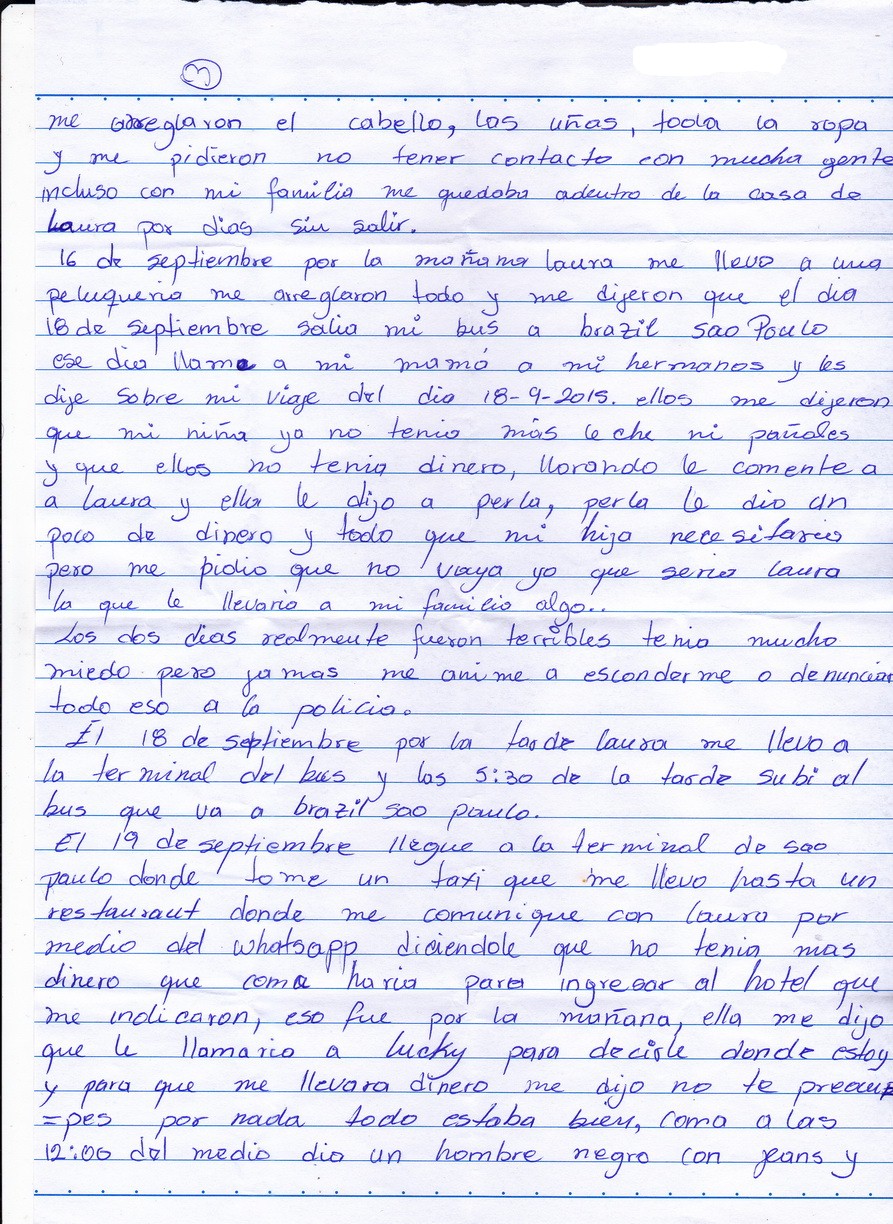 3
me arreglaron el cabello, las uñas, toda la ropa
y me pidieron no tener contacto con mucha gente
incluso con mi familia me quedaba adentro de la casa de
Laura por dias sin salir.
16 de septiembre por la mañama laura me llevo a una
peluqueria me arreglaron todo y me dijeron que el dia
18 de septiembre salia mi bus a brazil sao Paulo
ese dia llame a mi mamá a mi hermanos y les
dije sobre mi viaje del dia 18-9-2015. ellos me dijeron
que mi niña ya no tenia más leche ni pañales
y que ellos no tenia dinero, llorando le comente a
a laura y ella le dijo a perla, perla le dio un
poco de dinero y todo que mi hija necesitaria
pero me pidio que no vaya yo que seria laura
la que le llevaria a mi familia algo..
Los dos dias realmente fueron terribles tenia mucho
miedo pero jamas me anime a esconderme o denunciar
todo eso a la policia.
El 18 de septiembre por la tarde laura me llevo a
la terminal del bus y las 5:30 de la tarde subi al
bus que va a brazil sao paulo.
El 19 de septiembre llegue a la terminal de sao
paulo donde tome un taxi que me llevo hasta un
restauraut donde me comunique con laura por
medio del whatsapp diciendole que no tenia mas
dinero que coma haria para ingresar al hotel que
me indicaron, eso fue por la mañana, ella me dijo
que le llamaria a lucky para decirle donde estoy
y para que me llevara dinero me dijo no te preocu
=pes por nada todo estaba bien, coma a las
12:00 del medio dia un hombre negro con jeans y